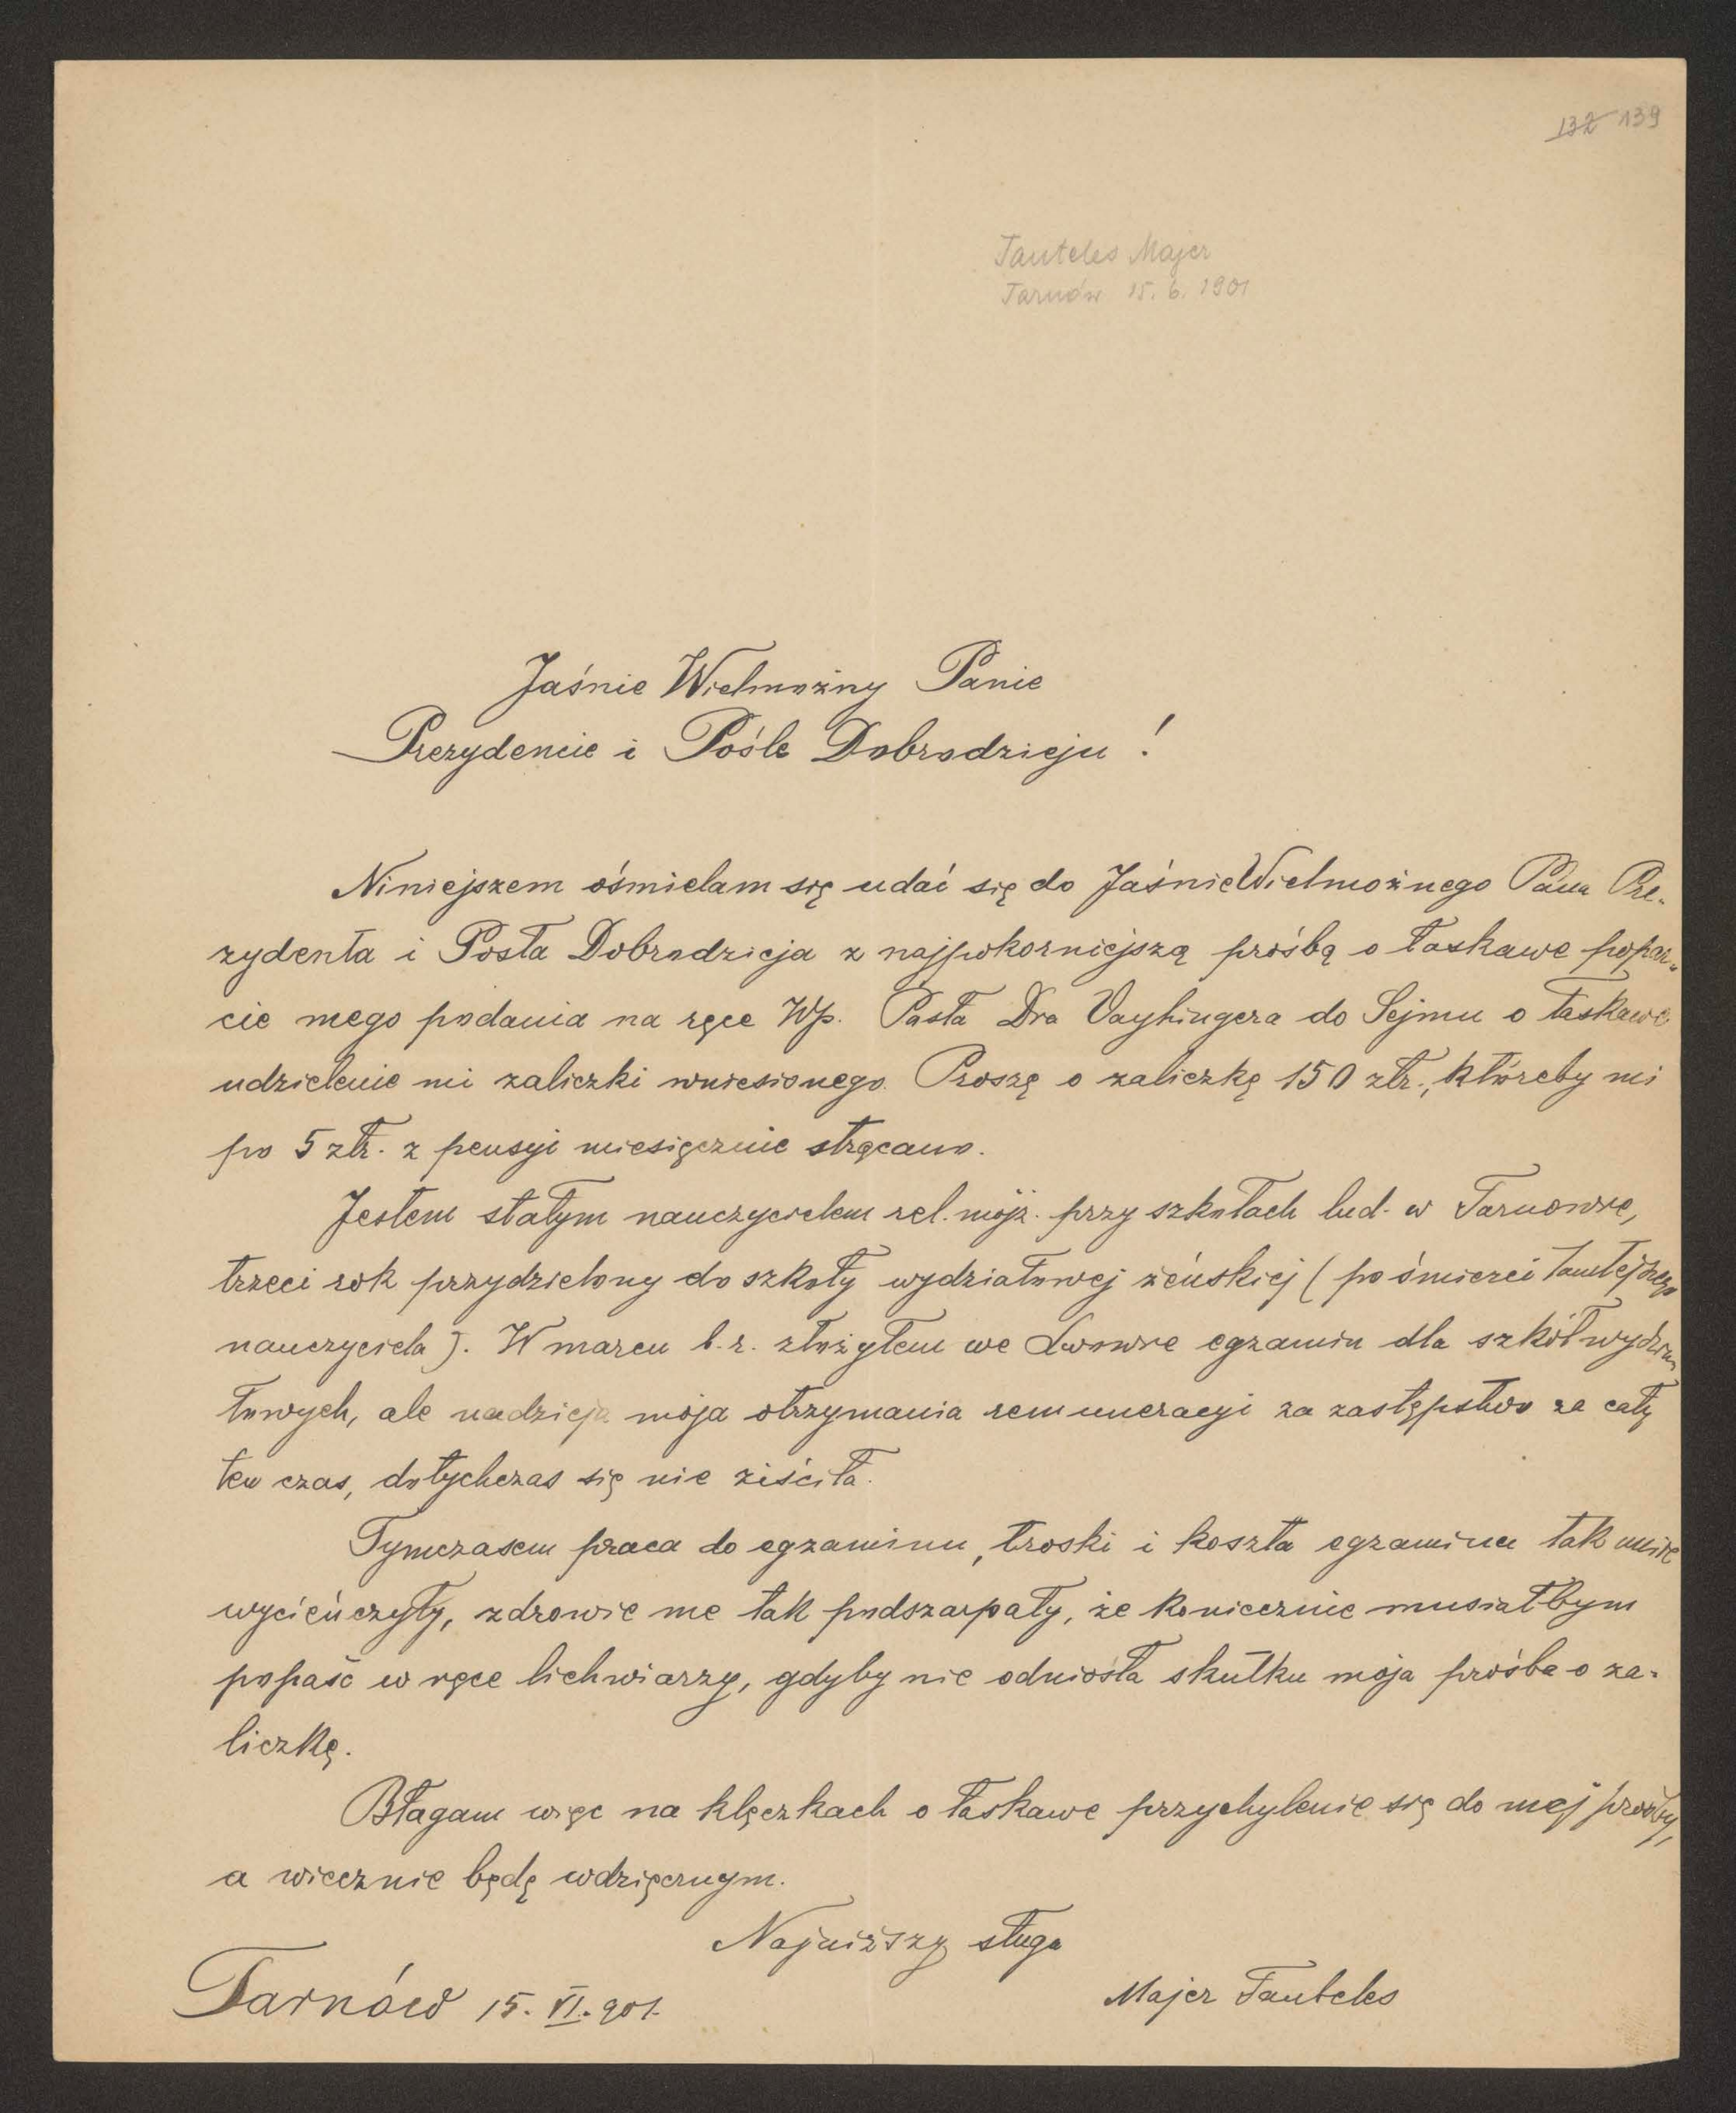 132 139
Tauteles Majer
Tarnów 15. 6. 1901
Jaśnie Wielmożny Panie
Prezydencie i Pośle Dobrodzieju!
Niniejszem ośmielam się udać się do JaśnieWielmożnego Pana Pre-
zydenta i Posła Dobrodzieja z najpokorniejszą prośbą o łaskawe popar-
cie mego podania na ręce Wp. Posła Dra Vayhingera do Sejmu o łaskawe
udzielenie mi zaliczki wniesionego. Proszę o zaliczkę 150 złr., któreby mi
po 5 złr. z pensyi miesięcznie strącano.
Jestem stałym nauczycielem rel. mojż. przy szkołach lud. w Tarnowie,
trzeci rok przydzielony do szkoły wydziałowej żeńskiej (po śmierci tamtejszego
nauczyciela). W marcu b. r. złożyłem we Lwowie egzamin dla szkół wydzia-
łowych, ale nadzieja moja otrzymania remuneracyi za zastępstwo za cały
ten czas, dotychczas się nie ziściła.
Tymczasem praca do egzaminu, troski i koszta egzaminu tak mnie
wycieńczyły, zdrowie me tak podszarpały, że koniecznie musiałbym
popaść w ręce lichwiarzy, gdyby nie odniosła skutku moja prośba o za-
liczkę.
Błagam więc na klęczkach o łaskawe przychylenie się do mej prośby,
a wiecznie będę wdzięcznym.
Najniższy sługa
Majer Tauteles
Tarnów 15. VI. 901.